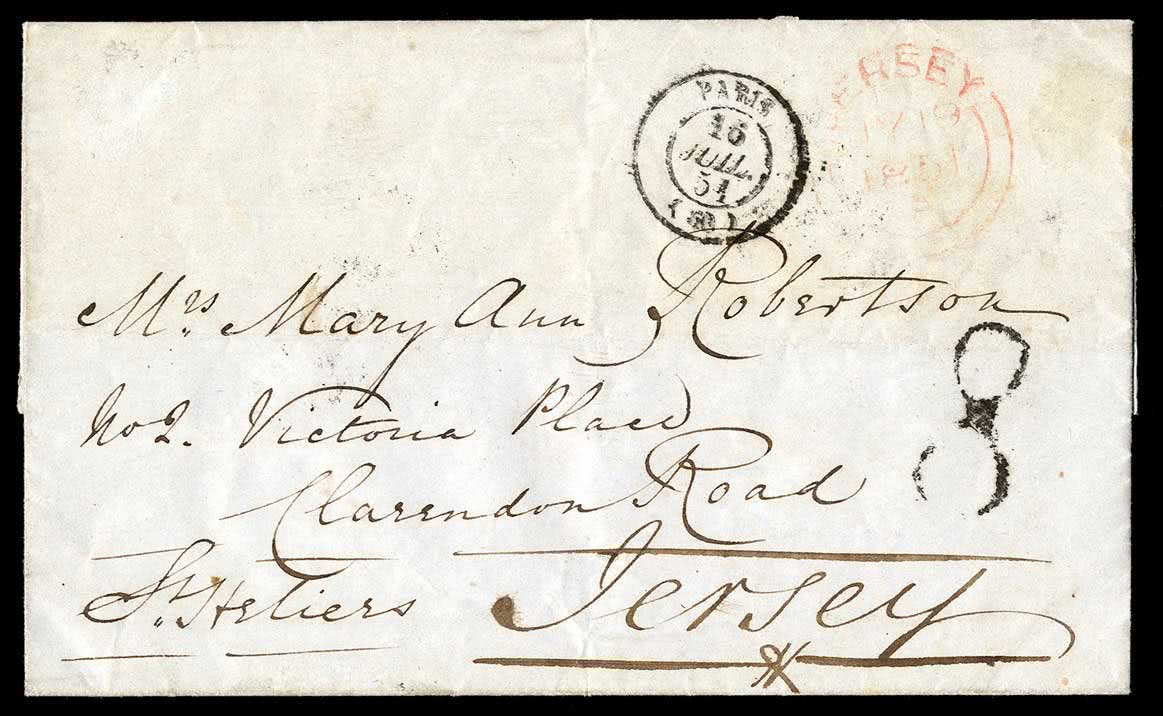 PARIS
16
JUIL.
51
(60)
JERSEY
JY 18
1851
Mrs. Mary Ann Robertson
No 2. Victoria Place
Clarendon Road
St. Heliers Jersey
8